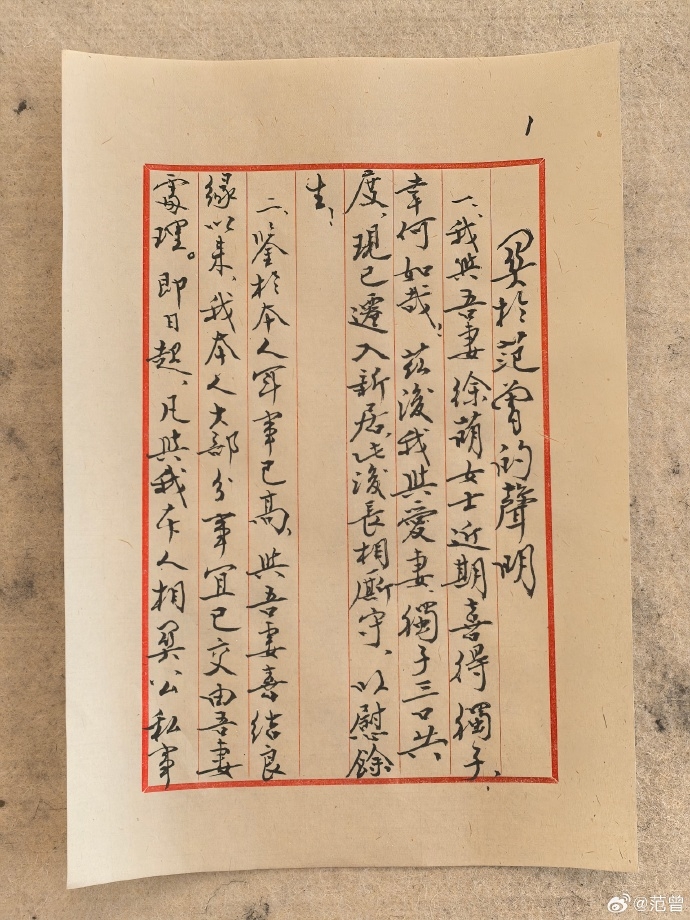 1
關於范曾的聲明
一、我與吾妻徐萌女士近期喜得獨子,
幸何如哉。茲後我與愛妻、獨子三口共
度,現已遷入新居,此後長相廝守,以慰餘
生;
二、鑒於本人年事已高,與吾妻喜結良
緣以來,我本人大部分事宜已交由吾妻
處理。即日起,凡與我本人相關公私事
@范曾